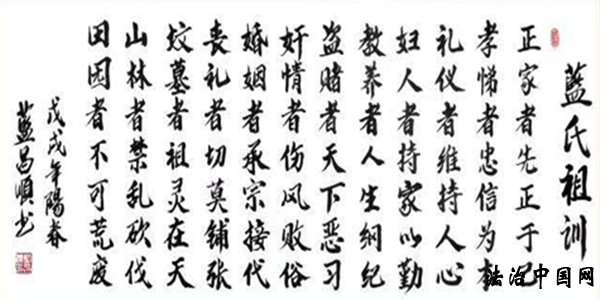 藍氏祖训
正家者先正于己
孝悌者忠信为本
礼仪者维持人心
妇人者持家以勤
教养者人生纲纪
盗赌者天下恶习
奸情者伤风败俗
婚姻者承宗接代
丧礼者切莫铺张
坟墓者祖灵在天
山林者禁乱砍伐
田园者不可荒废
戊戌年陽春
藍昌順书
法治中国网